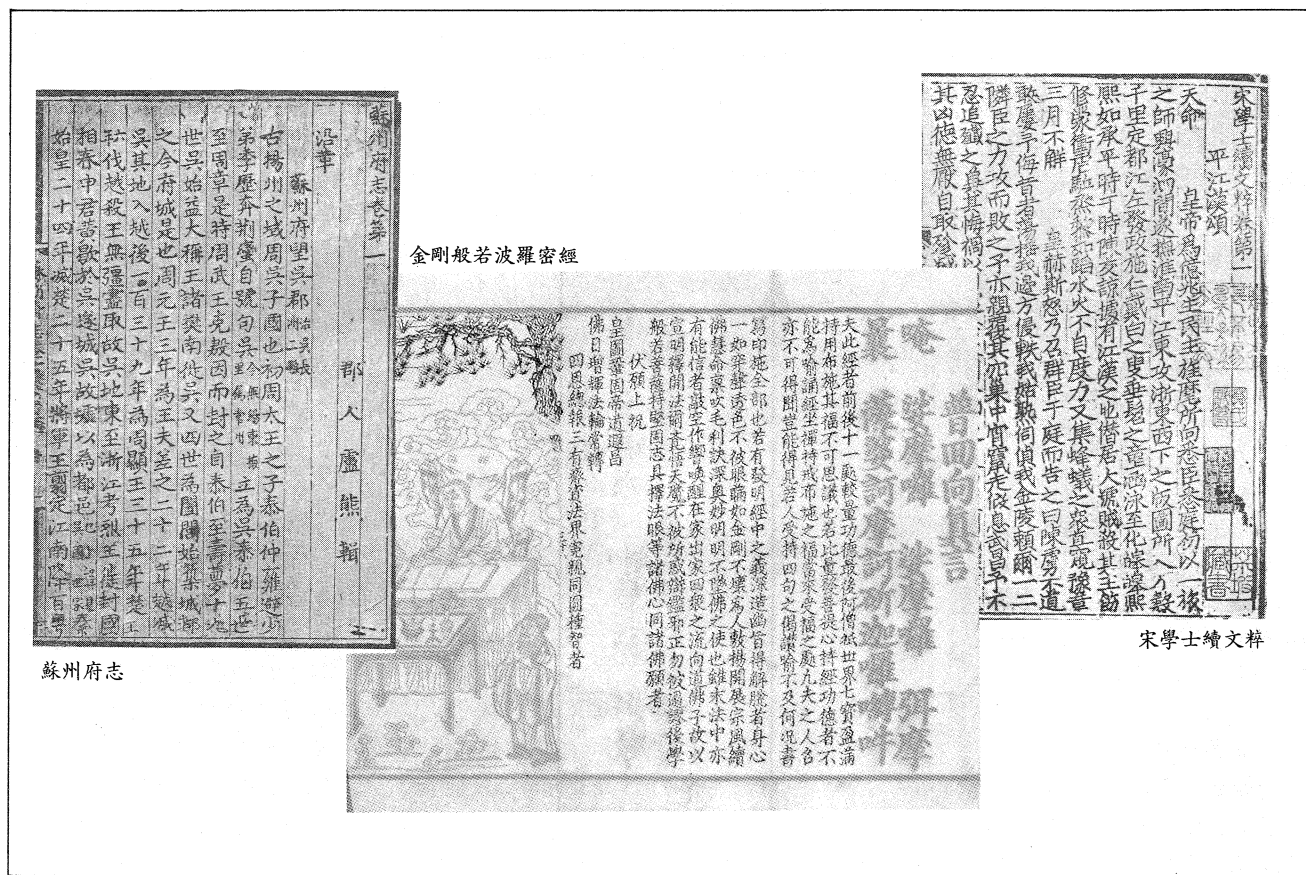 蘇州府志卷第一
郡人盧熊輯
沿革
蘇州府望吳郡
古揚州之域周吳子國也初周太王之子泰伯仲雍避少
弟季歷奔荊蠻自號句吳立為吳泰伯五世
至周章是時周武王克殷因而封之自泰伯至壽夢十九
世吳始益大稱王諸樊南徙吳又四世為闔閭始築城都
之今府城是也周元王三年為王夫差之二十二年越滅
吳其地入越後一百三十九年為周顯王三十五年楚
伐越殺王無彊盡取故吳地東至浙江考烈王徙封國
相春申君黃歇於吳遂城吳故墟以為都邑
始皇二十四年滅楚二十五年將軍王翦定江南降百粵
蘇州府志
金剛般若波羅密經
普回向真言
唵
娑摩囉
娑摩囉
弭摩
曩
薩嚩訶摩訶斫迦囉嚩吽
夫此經者前後十一處較量功德最後阿僧祇世界七寶盈滿
持用布施其福不可思議也若比量發菩提心持經功德者不
能為喻誦經坐禪持戒布施之福當來受福之處凡夫之人名
亦不可得聞豈能得見若人受持四句之偈讚喻不及何況書
寫印施全部也若有發明經中之義深造幽旨得解脫者身心
一如穿聲透色不彼眼瞞如金剛不壞為人敷揚開展宗風續
佛慧命裏吹毛利訣深奧妙明明不墜佛之使也雖末法中亦
有能信者敲空作響喚醒在家出家四眾之流向道佛子故以
宣明釋開法爾吝信天魔不彼所惑辯鑑邪正勿彼過謬後學
般若菩薩持堅固志具擇法眼等諸佛心同諸佛願者
伏願上祝
皇圖鞏固帝道遐昌
佛日增輝法輪常轉
四恩總報三有齊資法界冤親同圓種智者
宋學士續文粹卷第一
平江漢頌
天命
皇帝為億兆生民主旌麾所向悉臣悉庭初以一旅
之師興濠泗間遂撫淮甸平江東攻浙東西下之版圖所入方數
千里定都江左發政施仁戴白之叟垂髫之童涵泳至化皞皞熙
熙如承平時于時陳友諒據有江漢之地僭居大號賊殺其主
三月不解
皇赫斯怒乃召群臣于庭而告之曰陳虜不道
敢屢予侮昔者
邊方侵軼我姑孰伺偵我金陵賴爾一二
隣臣之力攻而敗之予亦親覆其穴巢中宵竄走假息武昌予不
忍追殲之
其凶德無厭自取
宋學士續文粹